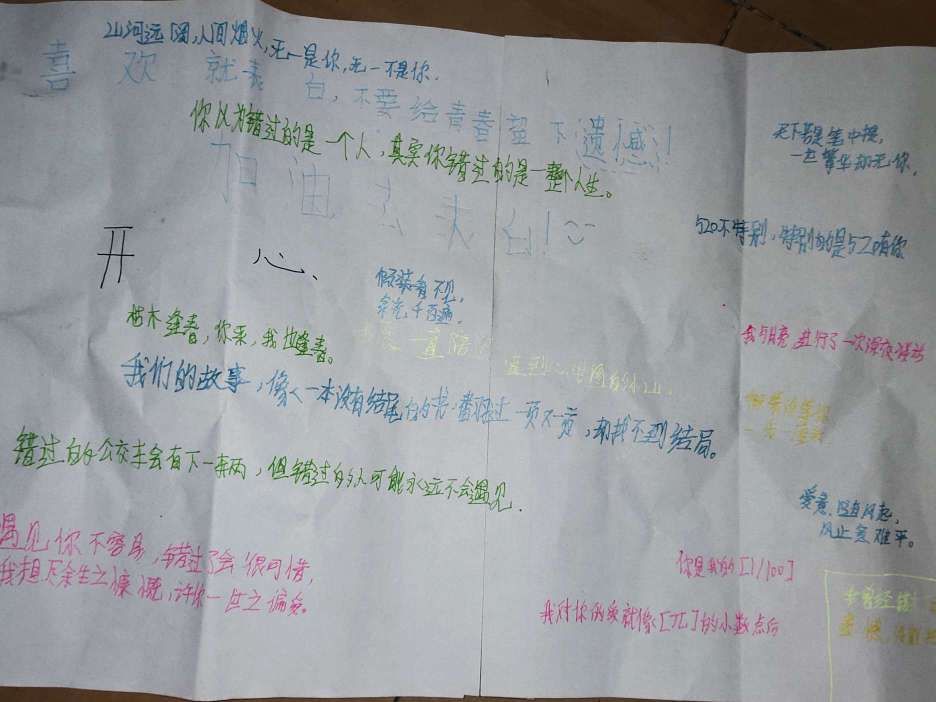 山河远阔,人间烟火,无一是你,无一不是你.
喜欢就表白,不要给青春留下遗憾!
你以为错过的是一个人,其实你错过的是一整个人生。
加油去表白!
天下皆是笔中搜,
一生繁华却无你.
520不特别,特别的是520有你
开心、
倾装有不见,
余光千百遍.
枯木逢春,你来,我也逢春。
一直陪
我与月亮进行了一次深夜谈话
我们的故事,像一本没有结尾的书,翻过一页又一页,却找不到结局。
错过的公交车会有下一辆,但错过的人可能永远不会遇见.
爱意随有风起,
风止意难平。
遇见你不容易,错过了会很可惜,
我想尽余生之慷慨,许你一世之偏爱。
你是我的[1/100]
我对你的爱就像[π]的小数点后